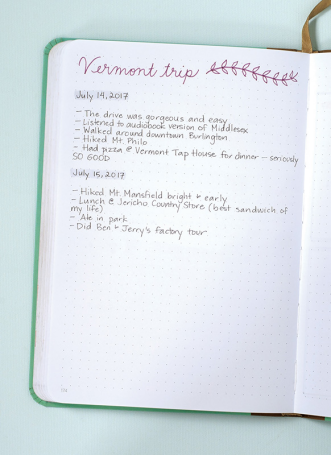 Vermont trip
July 14, 2017
- The drive was gorgeous and easy
- Listened to audiobook version of Middlesex
- Walked around downtown Burlington
- Hiked Mt. Philo
- Had pizza @ Vermont Tap House for dinner - seriously
SO GOOD
July 15, 2017
- Hiked Mt. Mansfield bright + early
- Lunch @ Jericho Country Store (best sandwich of
my life)
- Ale in park
- Did Ben + Jerry's factory tour